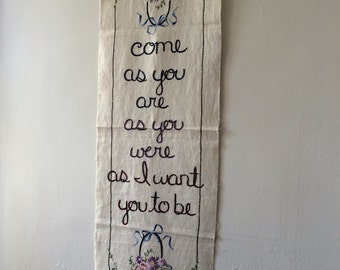 come
as you
are
as you
were
as I want
you to be